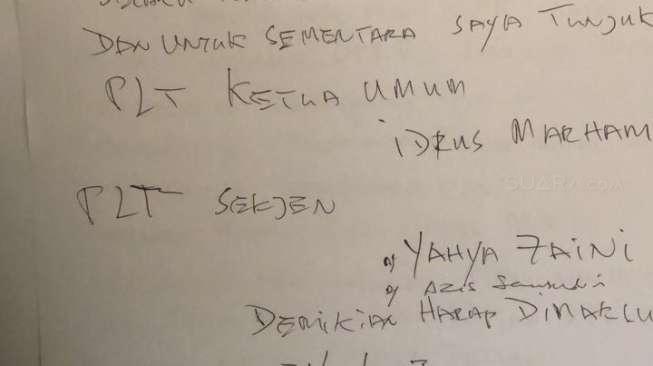 DAN UNTUK SEMENTARA SAYA TUNJUK
PLT KETUA UMUM
IDRUS MARHAM
PLT SEKJEN
SUARA.COM
YAHYA ZAINI
AZIS
DEMIKIAN HARAP DIMAKLU